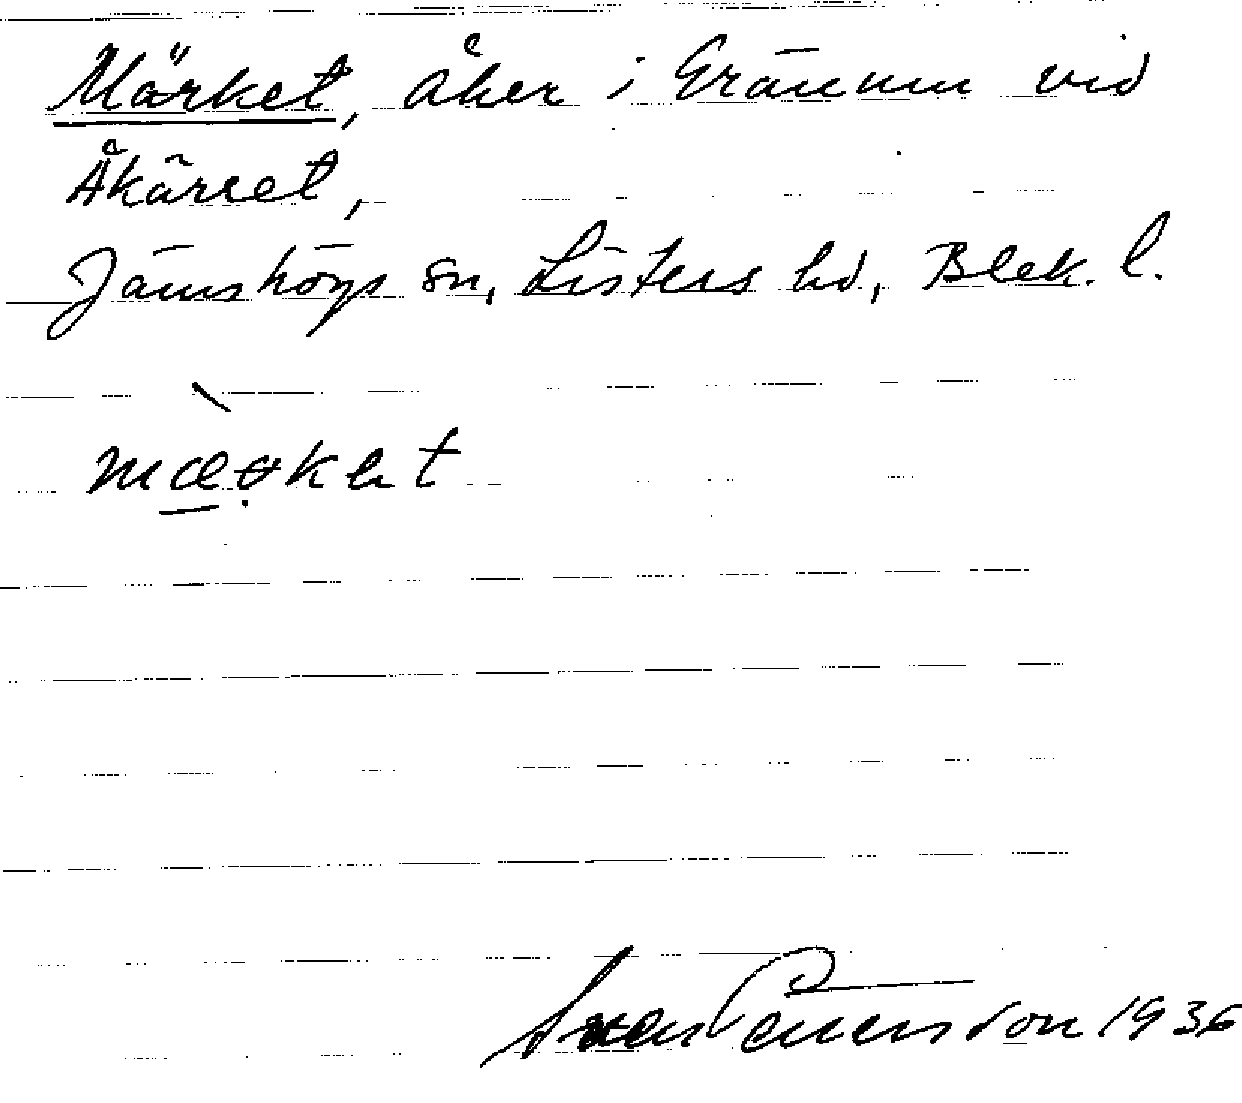 Märket, åker i Grännum vid
Åkärret,
Jämshögs sn, Listers hd, Blek. l.
mæɵkət
Sven Benson 1936